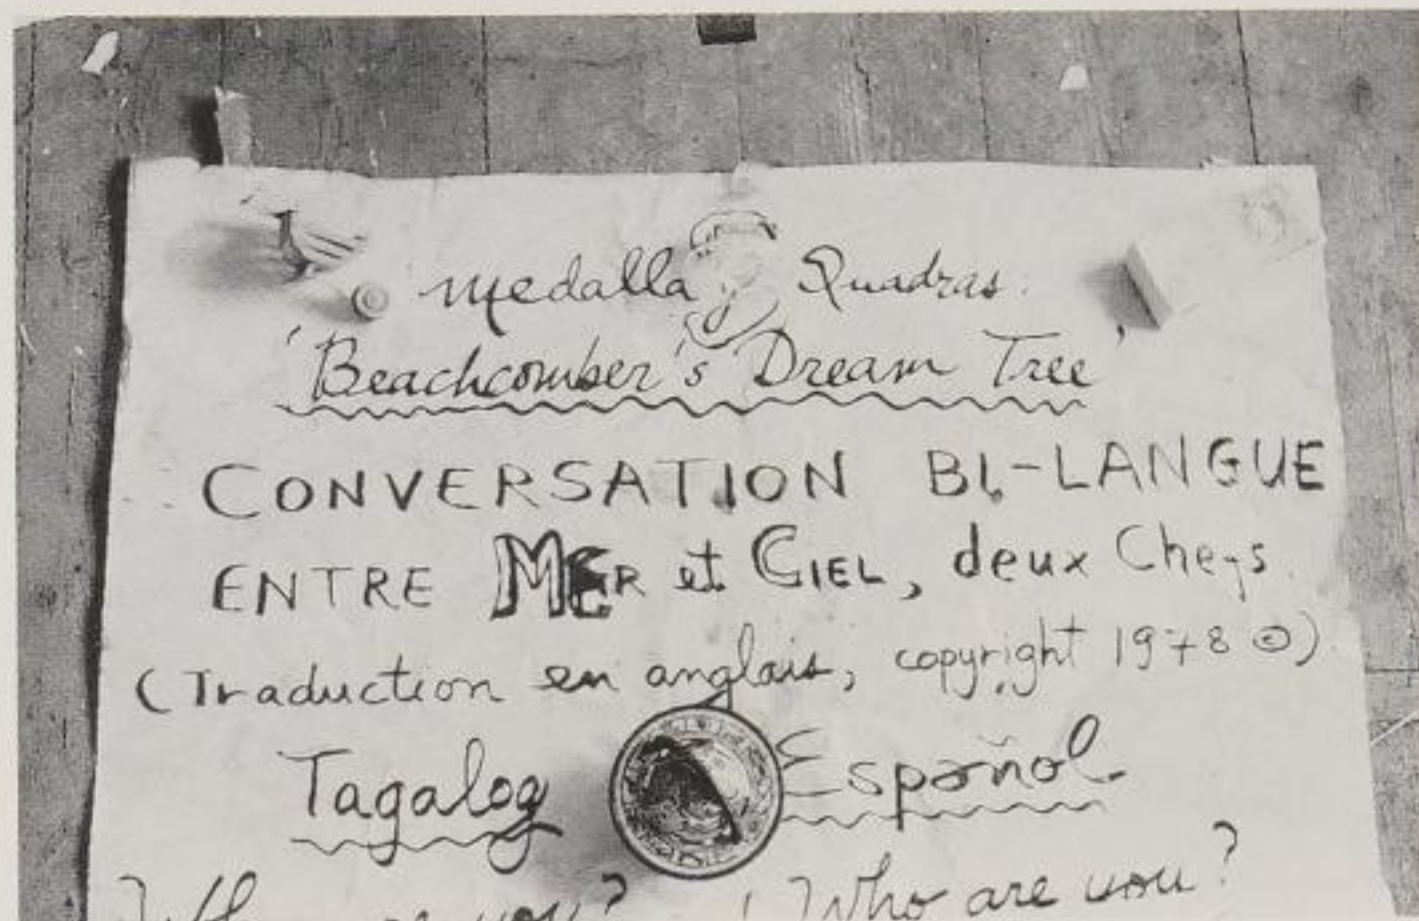 medalla Quadras.
'Beachcomber's Dream Tree'
CONVERSATION BI-LANGUE
ENTRE MER et CIEL, deux
(Traduction en anglais, copyright 1978 ©)
Tagalog Español.
you? Who are you?